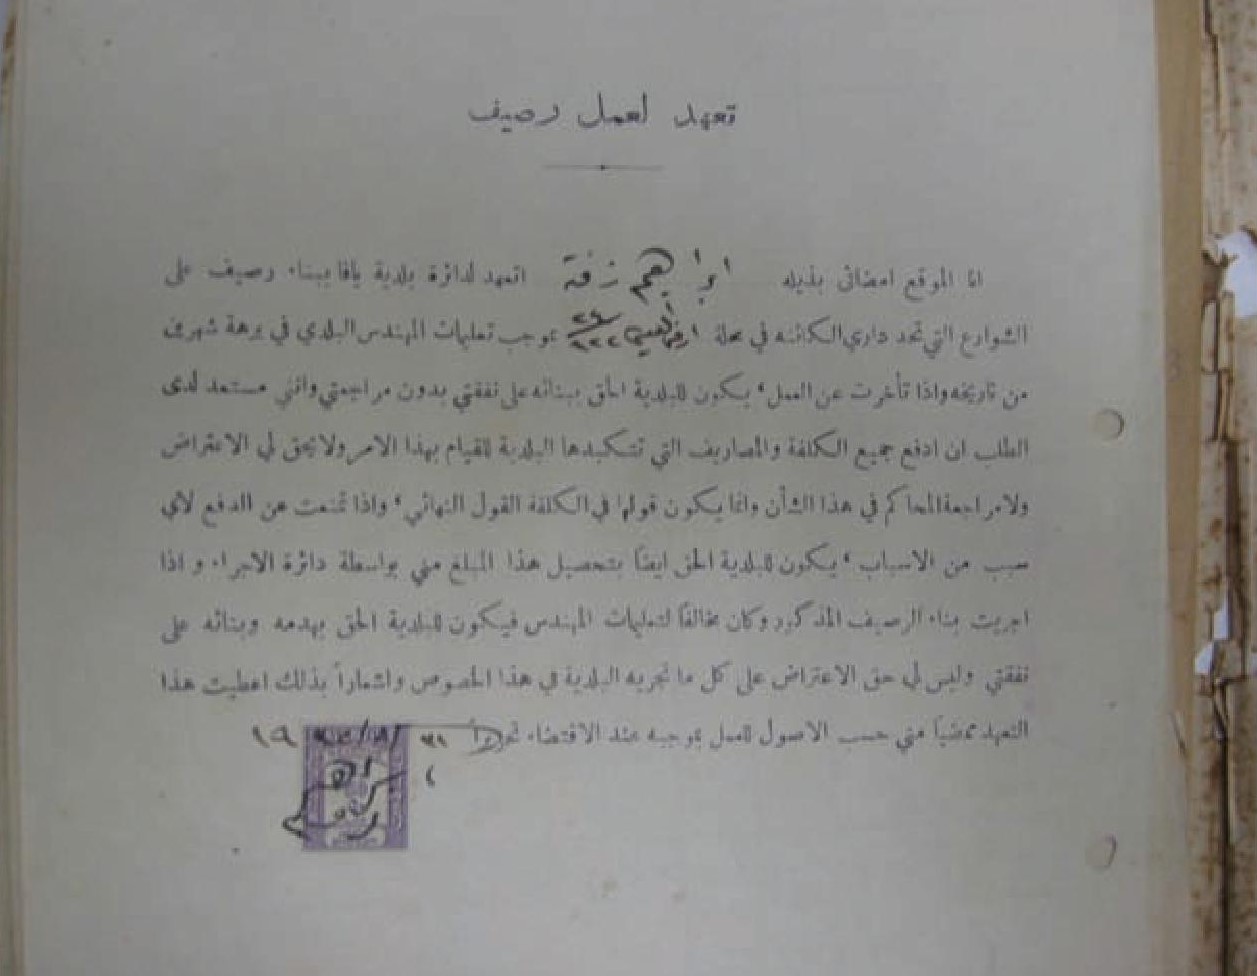 تعهد لعمل رصيف
انا الموقع امضائي بذيله ابراهيم زفة اتعهد لدائرة بلدية يافا ببناء رصيف على
الشوارع التي تحد داري الكائنه في محلة ارض بموجب تعليمات المهندس البلدي في برهة شهرين
من تاريخه واذا تأخرت عن العمل، يكون للبلدية الحق ببنائه على نفقتي بدون مراجعتي وانني مستعد لدى
الطلب ان ادفع جميع الكلفة والمصاريف التي تتكبدها البلدية للقيام بهذا الامر ولا يحق لي الاعتراض
ولا مراجعة المحاكم في هذا الشأن وانما يكون قولها في الكلفة القول النهائي، واذا تمنعت عن الدفع لاي
سبب من الاسباب، يكون للبلدية الحق ايضاً بتحصيل هذا المبلغ مني بواسطة دائرة الاجراء واذا
اجريت بناء الرصيف المذكور وكان مخالفاً لتعليمات المهندس فيكون للبلدية الحق بهدمه وبنائه على
نفقتي وليس لي حق الاعتراض على كل ما تجريه البلدية في هذا الخصوص واشعاراً بذلك اعطيت هذا
التعهد ممضياً مني حسب الاصول للعمل بموجبه عند الاقتضاء تحريراً